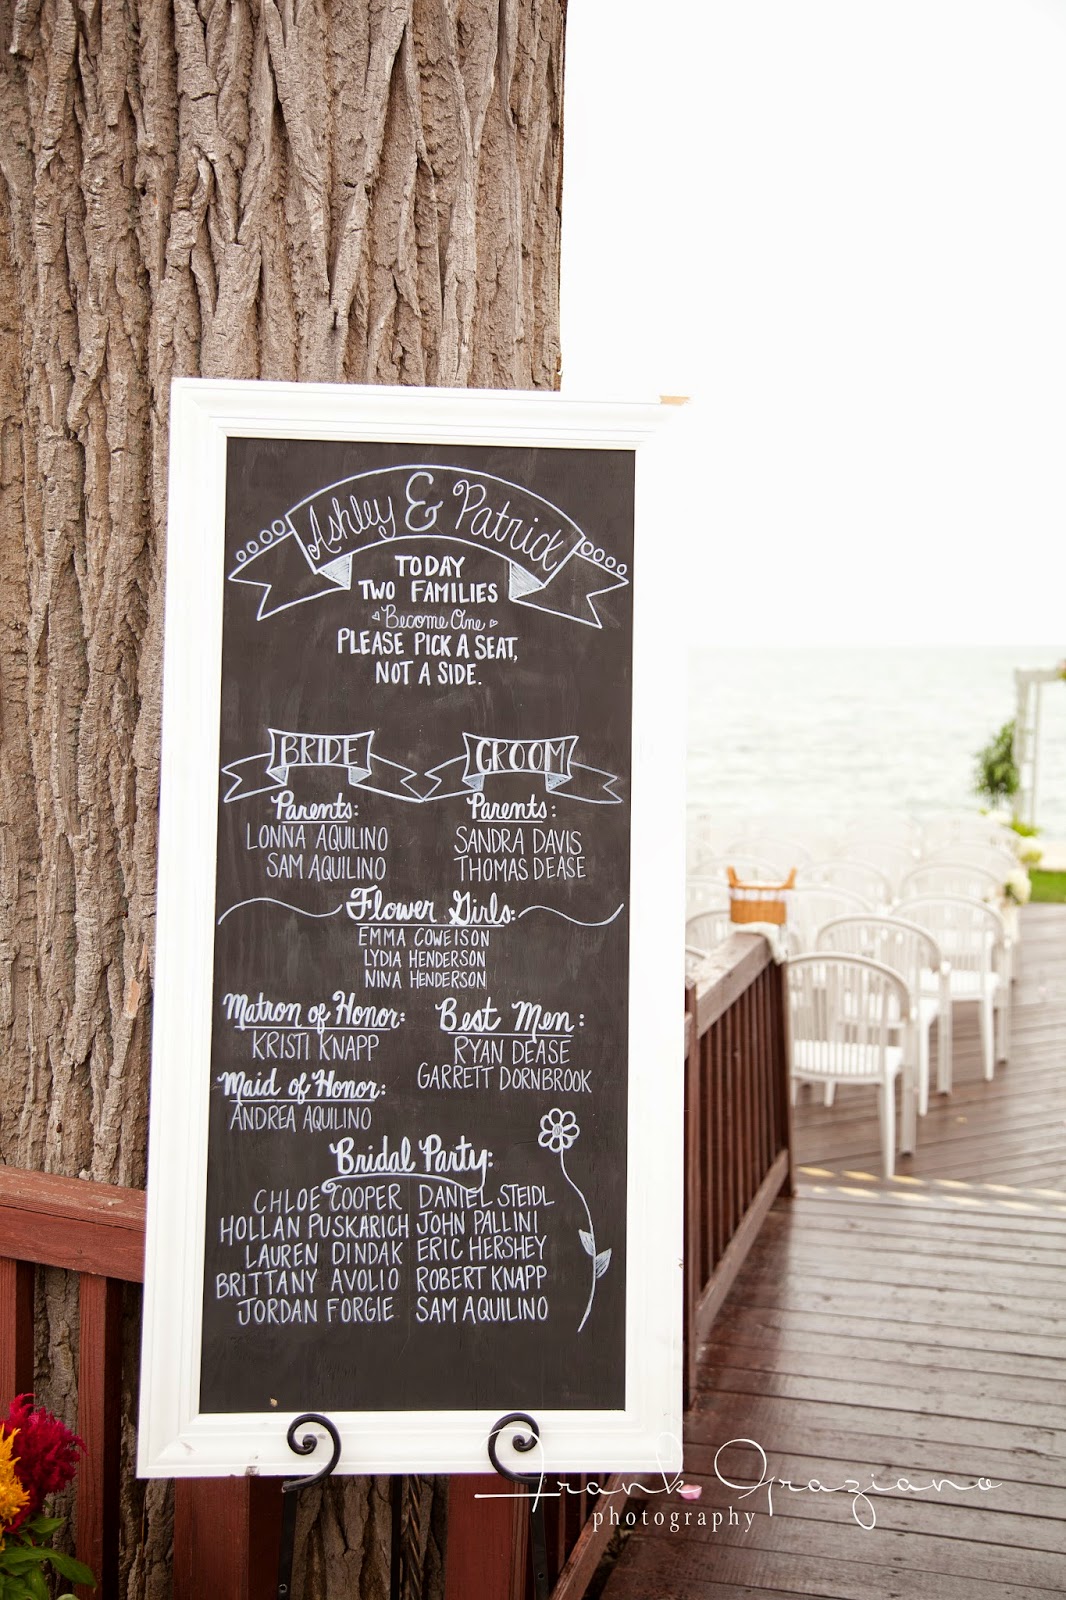 Ashley & Patrick
TODAY
TWO FAMILIES
Become One
PLEASE PICK A SEAT,
NOT A SIDE.
BRIDE
Parents:
LONNA AQUILINO
SAM AQUILINO
GROOM
Parents:
SANDRA DAVIS
THOMAS DEASE
Flower Girls:
EMMA COWEISON
LYDIA HENDERSON
NINA HENDERSON
Matron of Honor:
KRISTI KNAPP
Maid of Honor:
ANDREA AQUILINO
Best Men:
RYAN DEASE
GARRETT DORNBROOK
Bridal Party:
CHLOE COOPER DANIEL STEIDL
HOLLAN PUSKARICH JOHN PALLINI
LAUREN DINDAK ERIC HERSHEY
BRITTANY AVOLIO ROBERT KNAPP
JORDAN FORGIE SAM AQUILINO
Frank Graziano
photography